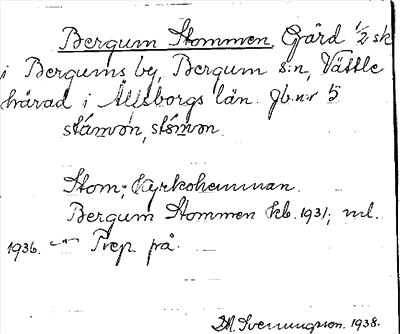 Bergum Stommen, Gård 1/2 sk
i Bergums by, Bergum s:n, Vättle
härad i Älfsborgs län. Jb. nr 5
stámon, stómon.
Stom; Kyrkohemman.
Bergum Stommen kb. 1931; ml.
1936. — Prep. på.
D.M. Svenungsson. 1938.